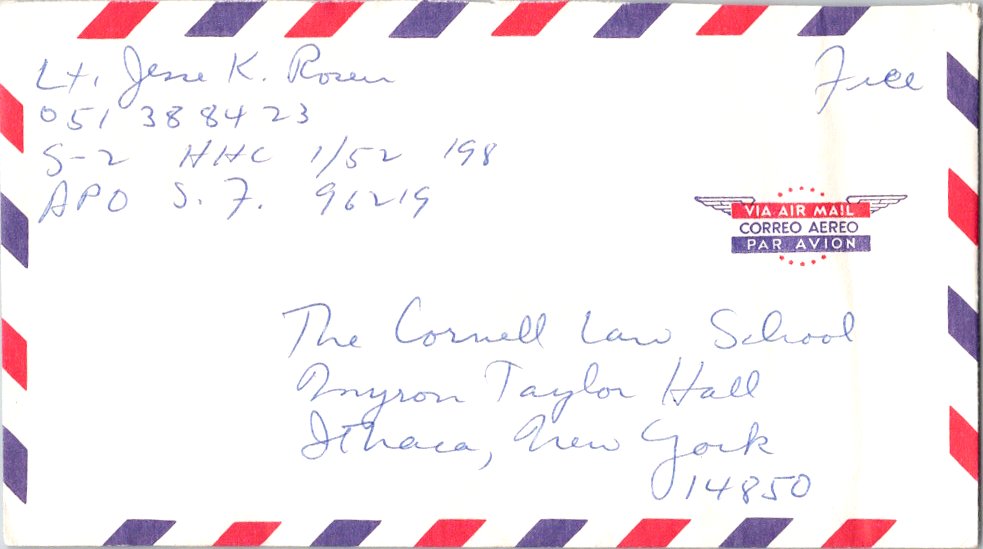 Lt. Jesse K. Rosen
051 38 84 23
S-2 HHC 1/52 198
APO S. F. 96219
Free
VIA AIR MAIL
CORREO AEREO
PAR AVION
The Cornell Law School
Myron Taylor Hall
Ithaca, New York
14850